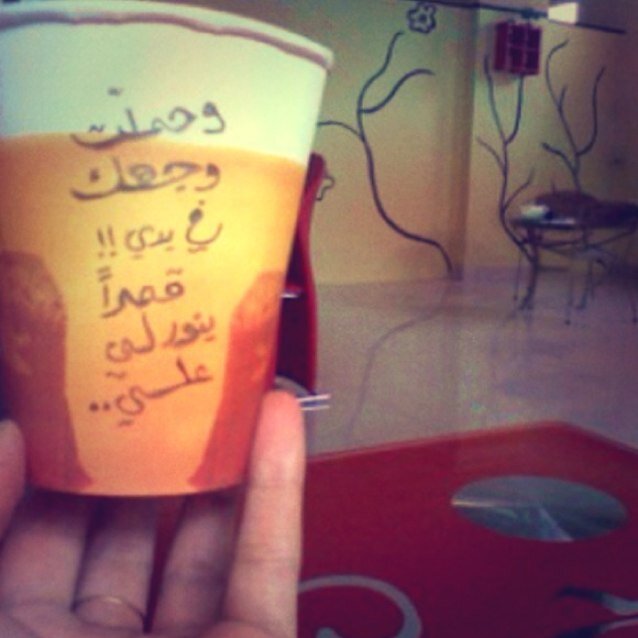 وحملت
وجهك
في يدي !!
قمراً
ينور لي
علي..